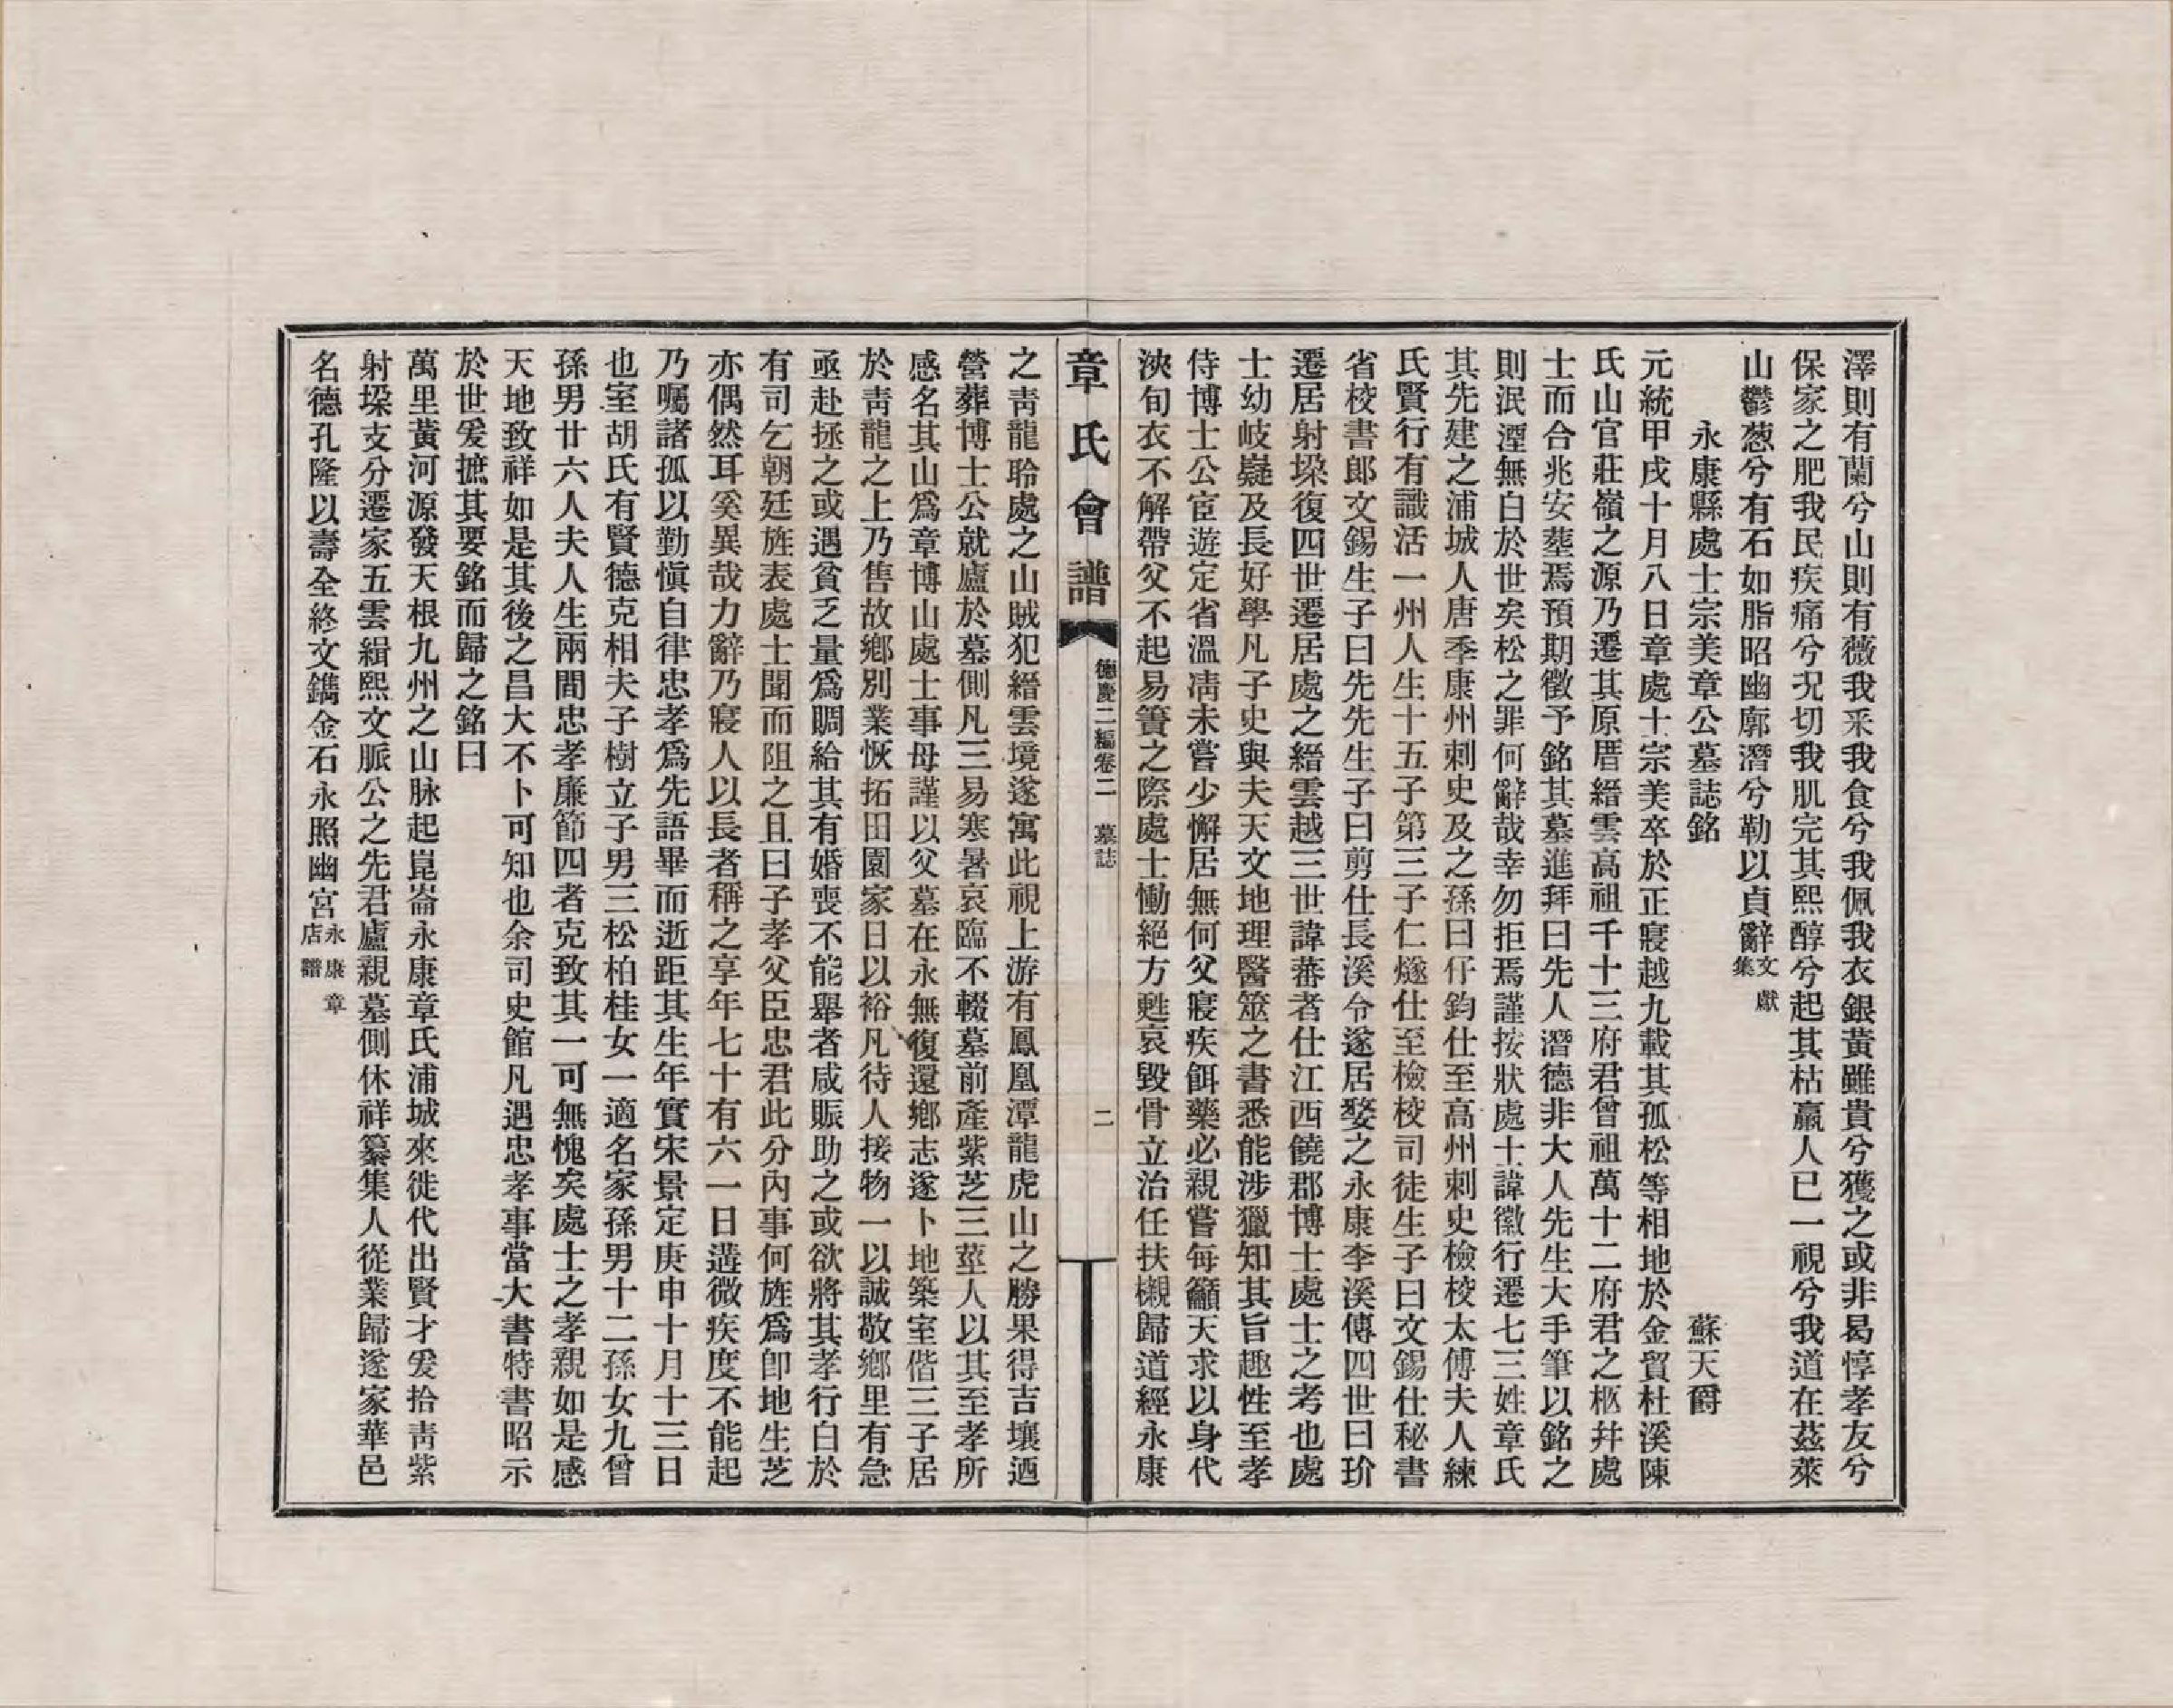 澤則有蘭兮山則有薇我釆我食兮我佩我衣銀黃雖貴兮獲之或非曷惇孝友兮
保家之肥我民疾痛兮況切我肌完其熙醇兮起其枯羸人已一視兮我道在茲萊
山鬱葱兮有石如脂昭幽廓潛兮勒以貞辭文獻集
永康縣處士宗美章公墓誌銘　蘇天爵
元統甲戌十月八日章處士宗美卒於正寢越九載其孤松等相地於金貿杜溪陳
氏山官莊嶺之源乃遷其原厝縉雲高祖千十三府君曾祖萬十二府君之柩幷處
士而合兆安塟焉預期徵予銘其墓進拜曰先人潛德非大人先生大手筆以銘之
則泯湮無白於世矣松之罪何辭哉幸勿拒焉謹按狀處士諱徽行遷七三姓章氏
其先建之浦城人唐季康州刺史及之孫曰仔鈞仕至高州刺史檢校太傅夫人練
氏賢行有識活一州人生十五子第三子仁燧仕至檢校司徒生子曰文錫仕秘書
省校書郎文錫生子曰先先生子曰剪仕長溪令遂居婺之永康李溪傳四世曰玠
遷居射垜復四世遷居處之縉雲越三世諱蕃者仕江西饒郡博士處士之考也處
士幼岐嶷及長好學凡子史與夫天文地理醫筮之書悉能涉獵知其旨趣性至孝
侍博士公宦遊定省溫凊未嘗少懈居無何父寢疾餌藥必親嘗每籲天求以身代
浹旬衣不解帶父不起易簀之際處士慟絕方甦哀毀骨立治任扶櫬歸道經永康
章氏會譜　德慶二編卷二　墓誌　二
之靑龍聆處之山賊犯縉雲境遂寓此視上游有鳳凰潭龍虎山之勝果得吉壤迺
營葬博士公就廬於墓側凡三易寒暑哀臨不輟墓前產紫芝三莖人以其至孝所
感名其山爲章博山處士事母謹以父墓在永無復還鄉志遂卜地築室偕三子居
於靑龍之上乃售故鄉別業恢拓田園家日以裕凡待人接物一以誠敬鄉里有急
亟赴拯之或遇貧乏量爲賙給其有婚喪不能舉者咸賑助之或欲將其孝行白於
有司乞朝廷旌表處士聞而阻之且曰子孝父臣忠君此分內事何旌爲卽地生芝
亦偶然耳奚異哉力辭乃寢人以長者稱之享年七十有六一日遘微疾度不能起
乃囑諸孤以勤愼自律忠孝爲先語畢而逝距其生年實宋景定庚申十月十三日
也室胡氏有賢德克相夫子樹立子男三松柏桂女一適名家孫男十二孫女九曾
孫男廿六人夫人生兩間忠孝廉節四者克致其一可無愧矣處士之孝親如是感
天地致祥如是其後之昌大不卜可知也余司史館凡遇忠孝事當大書特書昭示
於世爰摭其要銘而歸之銘曰
萬里黃河源發天根九州之山脉起崑崙永康章氏浦城來徙代出賢才爰拾靑紫
射垜支分遷家五雲緝熙文脈公之先君廬親墓側休祥纂集人從業歸遂家華邑
名德孔隆以壽全終文鐫金石永照幽宮永康章店譜